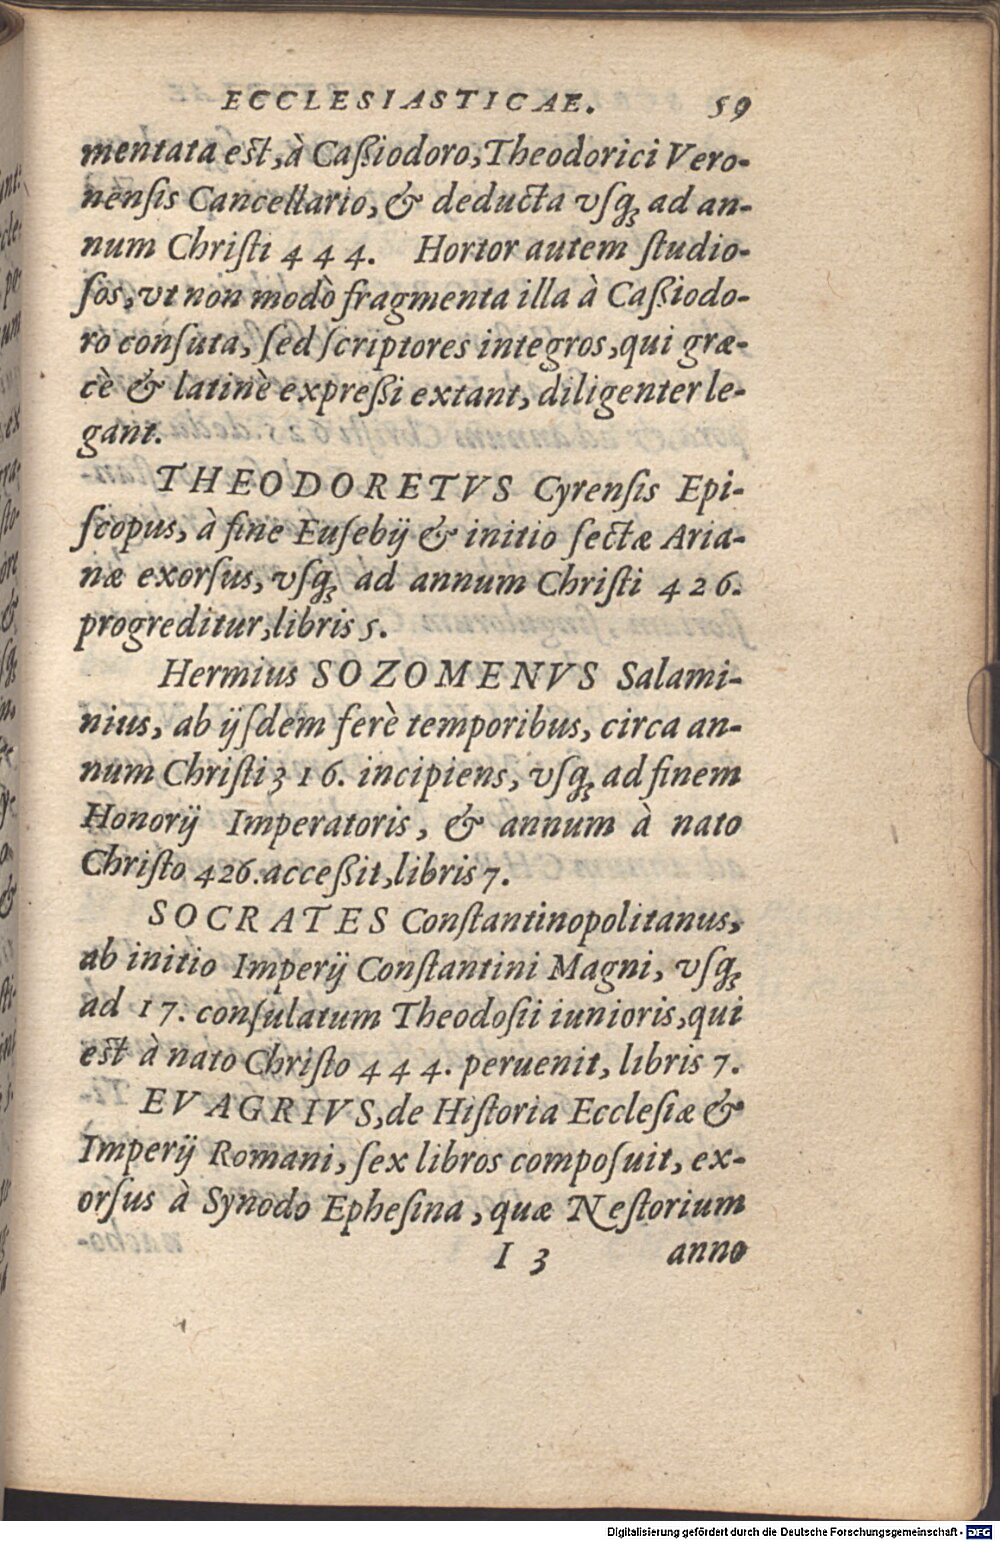 ECCLESIASTICAE. 59
mentata est, à Caßiodoro, Theodorici Vero-
nensis Cancellario, & deducta vſq́; ad an-
num Chriſti 444. Hortor autem ſtudio-
ſos, vt non modò fragmenta illa à Caßiodo-
ro conſuta, ſed ſcriptores integros, qui græ-
cè & latinè expreßi extant, diligenter le-
gant.
THEODORETVS Cyrenſis Epi-
ſcopus, à fine Euſebij & initio ſectæ Aria-
næ exorſus, vſq́; ad annum Chriſti 426.
progreditur, libris 5.
Hermius SOZOMENVS Salami-
nius, ab ijſdem ferè temporibus, circa an-
num Chriſti 316. incipiens, vſq́; ad finem
Honorij Imperatoris, & annum à nato
Chriſto 426. acceßit, libris 7.
SOCRATES Conſtantinopolitanus,
ab initio Imperij Conſtantini Magni, vſq́;
ad 17. conſulatum Theodoſii iunioris, qui
est à nato Chriſto 444. peruenit, libris 7.
EVAGRIVS, de Hiſtoria Eccleſiæ &
Imperij Romani, ſex libros compoſuit, ex-
orſus à Synodo Epheſina, quæ Neſtorium
I 3 anno
Digitalisierung gefördert durch die Deutsche Forschungsgemeinschaft - DFG